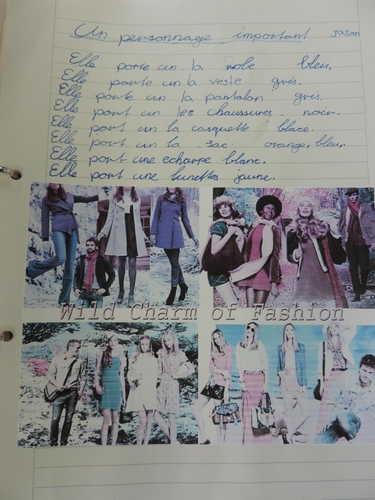 Un personnage important Jason
Elle porte un la robe bleu.
Elle porte un la veste gris.
Elle porte un la pantalan gris.
Elle port un les chaussures noir.
Elle port un la casquette blace.
Elle port un la sac orange, bleu.
Elle port une echarpe blanc.
Elle port une lunettes jaune.
Wild Charm of Fashion